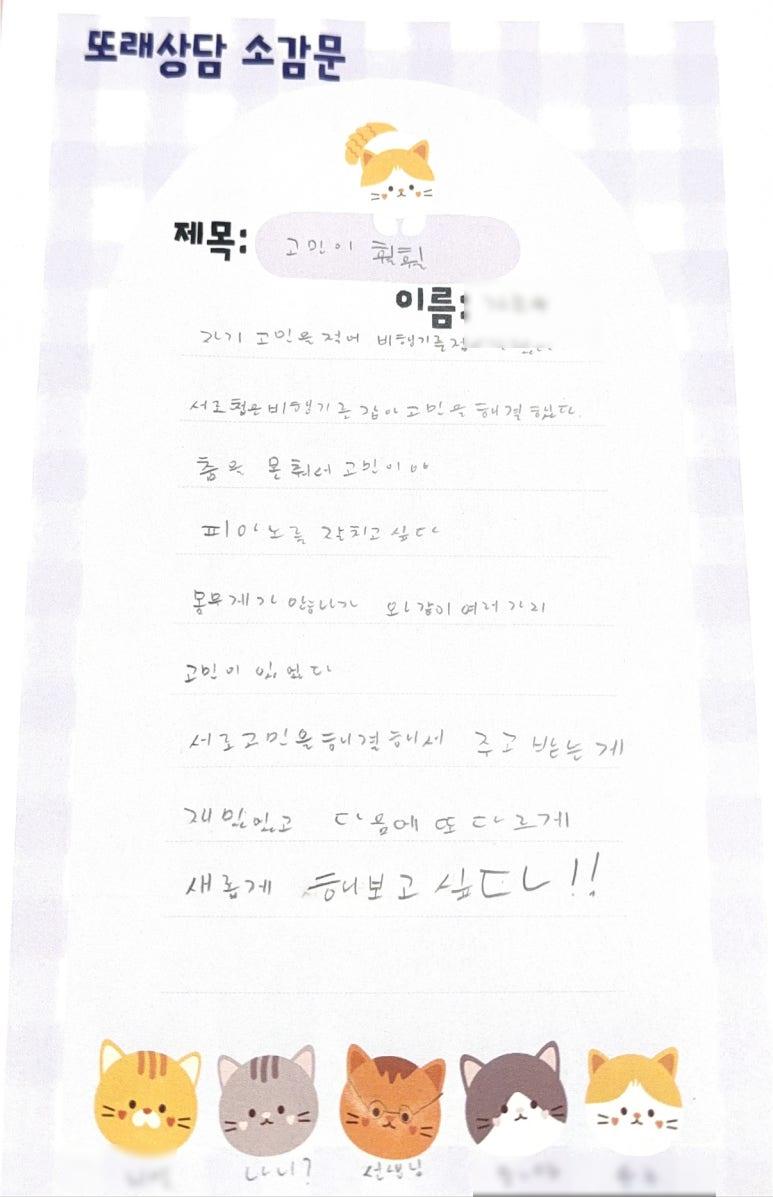 또래상담 소감문
제목: 고민이 훨훨
이름:
자기 고민을 적어 비행기를 접
서로 접은 비행기를 잡아 고민을 해결했다.
춤을 못춰서 고민이야
피아노를 잘치고 싶다
몸무게가 안늘나가 와 같이 여러가지
고민이 있었다
서로고민을 해결해서 주고 받는 게
재밌있고 다음에 또 다르게
새롭게 해보고 싶다!!
나니?
선생님